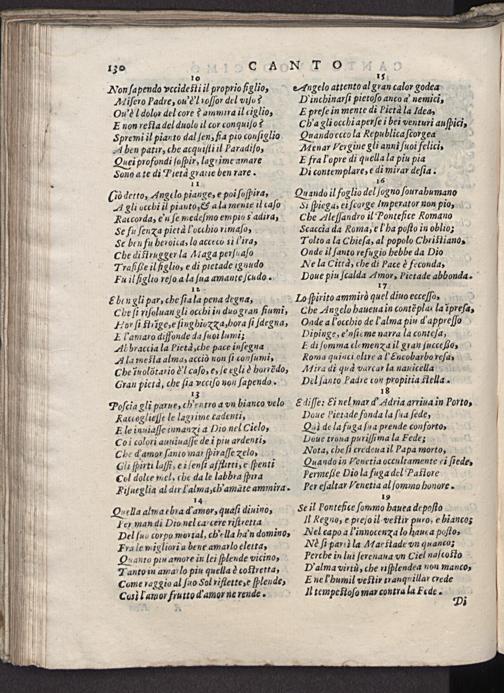 130
CANTO
10
Non sapendo vccidesti il proprio figlio,
Misero Padre, ou'è l'rossor del viso?
Ou'è l dolor del core? ammira il ciglio,
E non resta del duolo il cor conquiso?
Spremi il pianto dal sen, sia pio consiglio
A ben patir, che acquisti il Paradiso,
Quei profondi sospir, lagrime amare
Sono a te di Pietà graue ben rare.
11
Ciò detto, Angelo piange, e poi sospira,
A gli occhi il pianto, & a la mente il caso
Raccorda, e'n se medesmo empio s'adira,
Se fu senza pietà l'occhio rimaso,
Se ben fu heroica, lo acceco sì l'ira,
Che distrugger la Maga persuaso
Trafisse il figlio, e di pietade ignudo
Fu il figlio reso a la sua amante scudo.
12
E ben gli par, che sia la pena degna,
Che si risoluan gli occhi in duo gran fiumi,
Hor si strige, e singhiozza, hora si sdegna,
E l'amaro diffonde da suoi lumi;
Al braccia la Pietà, che pace insegna
A la mesta alma, acciò non si consumi,
Che inuolōtario è l caso, e, se egli è horrēdo,
Gran pietà, che sia vcciso non sapendo.
13
Poscia gli parue, ch'entro a vn bianco velo
Raccogliesse le lagrime cadenti,
E le inuiasse innanzi a Dio nel Cielo,
Co i colori auuiuasse de i piu ardenti,
Che d'amor santo mar spirasse zelo,
Gli spirti lassi, e i sensi afflitti, e spenti
Col dolce mel, che da le labbra spira
Risueglia al dir l'alma, ch'amāte ammira.
14
Quella alma ebra d'amor, quasi diuino,
Per man di Dio nel carcere ristretta
Del suo corpo mortal, ch'ella ha'n domino,
Fra le migliori a bene amarlo eletta,
Quanto piu amore in lei splende vicino,
Tanto in amarlo piu quella è costretta,
Come raggio al suo Sol riflette, e splende,
Così l'amor frutto d'amor ne rende.
15
Angelo attento al gran calor godea
D'inchinarsi pietoso anco a' nemici,
E prese in mente di Pietà la Idea,
Ch'a gli occhi aperse i bei venturi auspici,
Quando ecco la Republica scorgea
Menar Vergine gli anni suoi felici,
E fra l'opre di quella la piu pia
Di contemplare, e di mirar desia.
16
Quando il foglio del sogno sourahumano
Si spiega, ei scorge Imperator non pio,
Che Alessandro il Pontefice Romano
Scaccia da Roma, e l'ha posto in oblio;
Tolto a la Chiesa, al popolo Christiano,
Onde il santo refugio hebbe da Dio
Ne la Città, che di Pace è feconda,
Doue piu scalda Amor, Pietade abbonda.
17
Lo spirito ammirò quel diuo eccesso,
Che Angelo haueua in contēplar la īpresa,
Onde a l'occhio de l'alma piu d'appresso
Dipinge, e'nsieme narra la contesa,
E di somma clemenza il gran successo,
Roma quinci oltre a l'Enobarbo resa,
Mira di quà varcar la nauicella
Del santo Padre con propitia stella.
18
E disse: Ei nel mar d'Adria arriua in Porto,
Doue Pietade fonda la sua sede,
Quì de la fuga sua prende conforto,
Doue troua purissima la Fede;
Nota, che si credeua il Papa morto,
Quando in Venetia occultamente ei siede,
Permesse Dio la fuga del Pastore
Per esaltar Venetia al sommo honore.
19
Se il Pontefice sommo hauea deposto
Il Regno, e preso il vestir puro, e bianco;
Nel capo a l'innocenza lo hauea posto,
Nè si partì la Maestade vn quanco;
Perche in lui serenaua vn Ciel nascosto
D'alma virtù, che risplendea non manco,
E ne l'humil vestir tranquillar crede
Il tempestoso mar contra la Fede.
Di